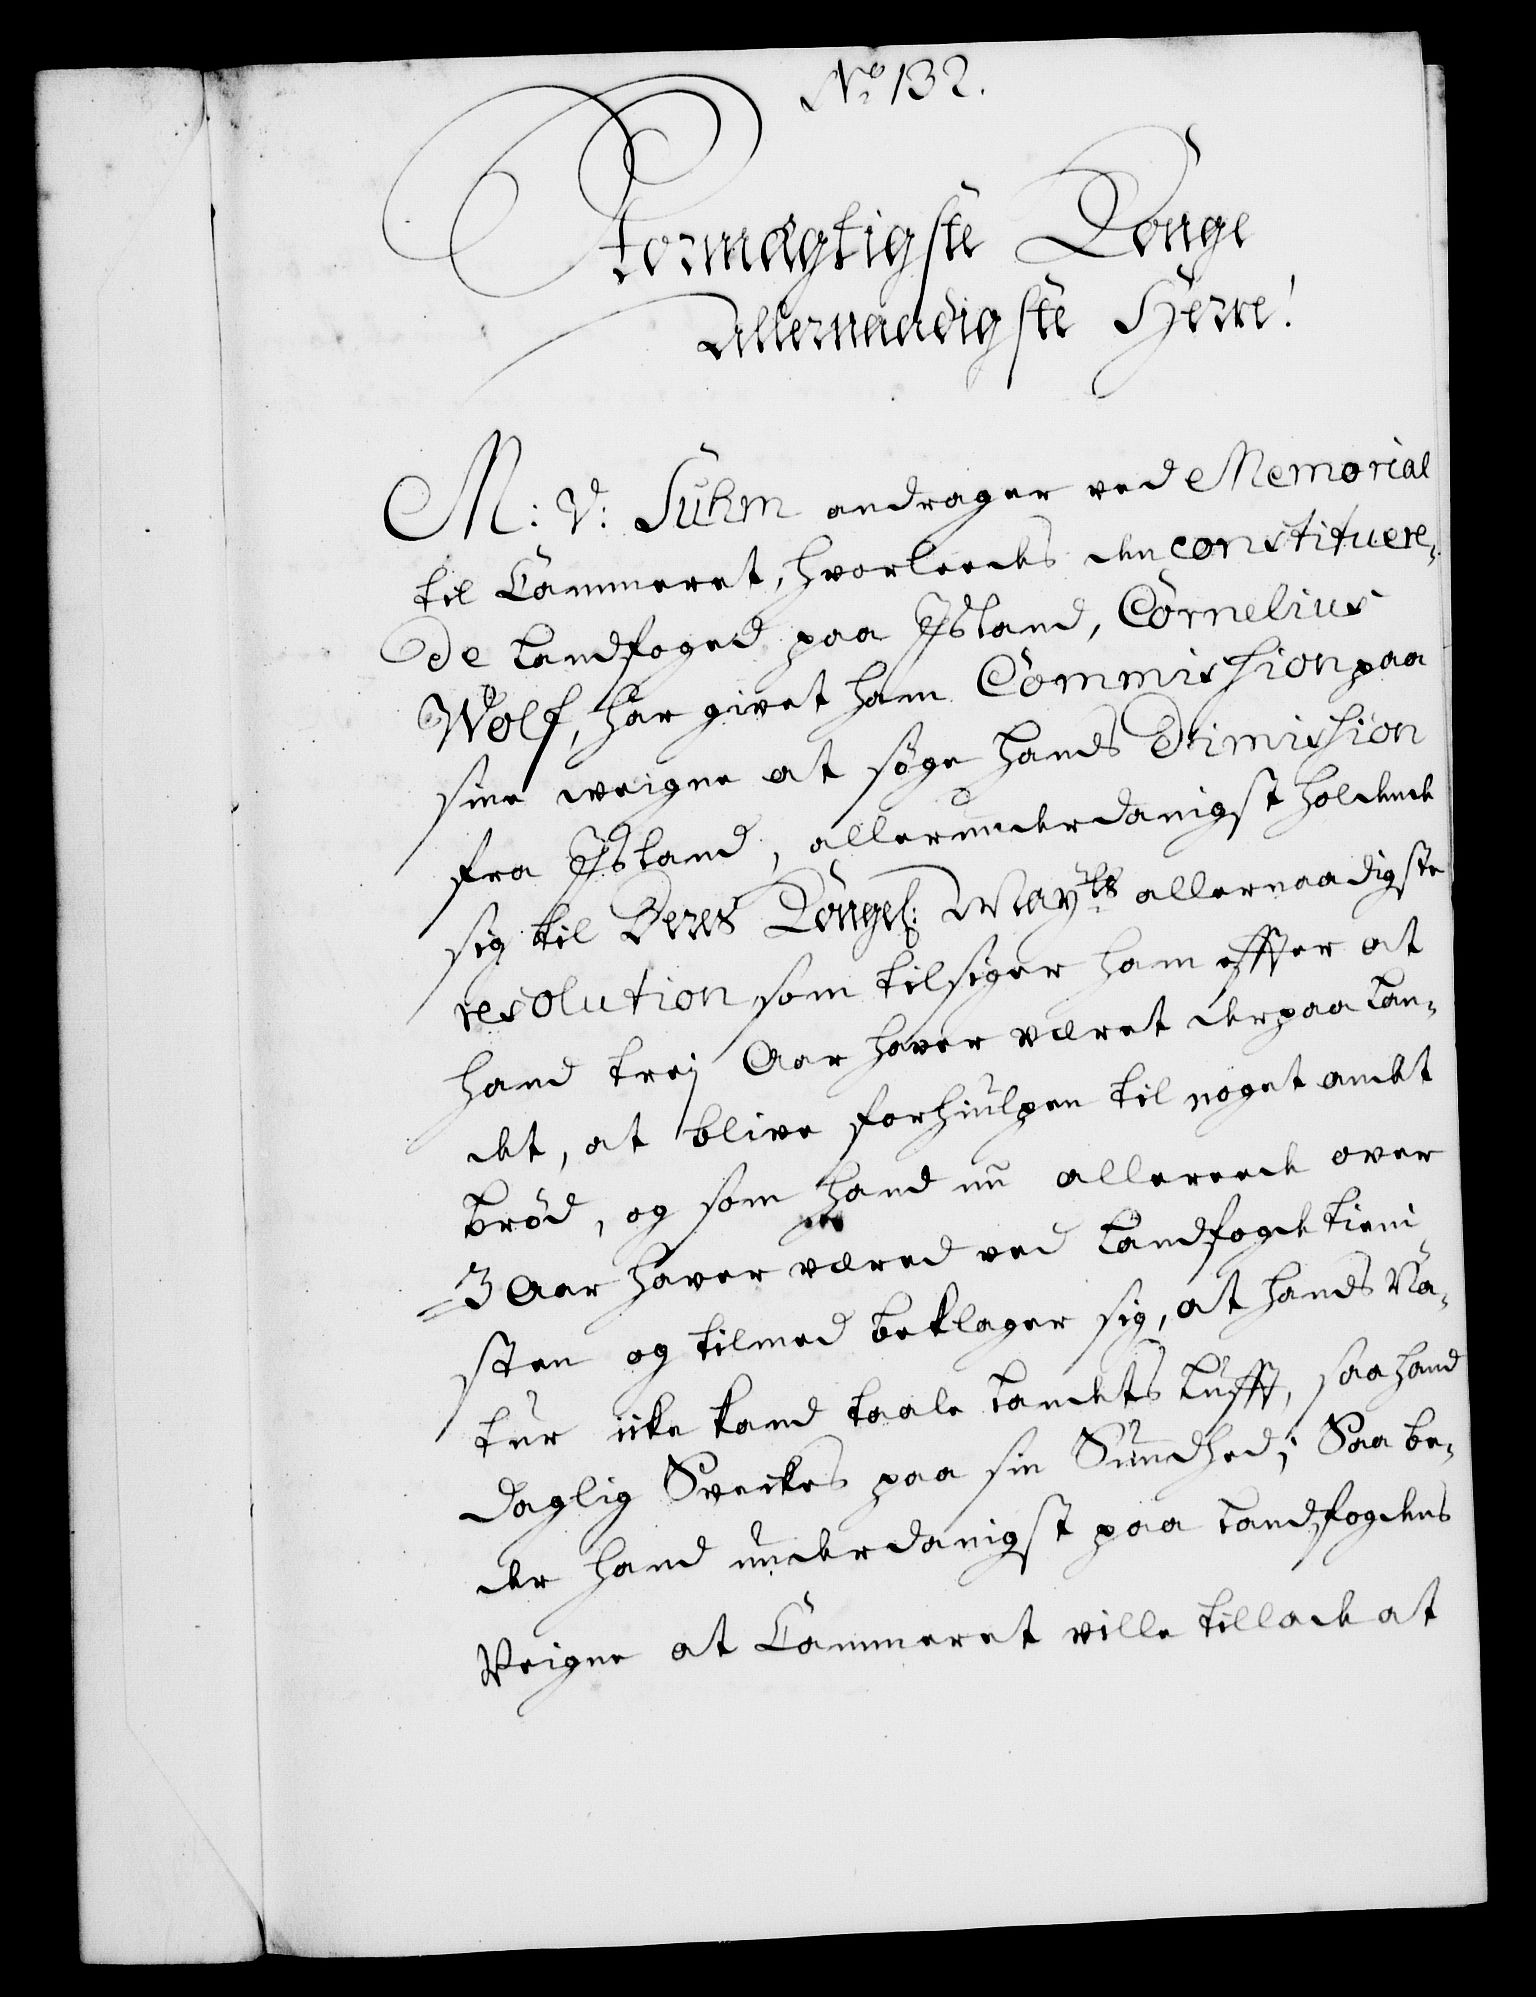 No 132.
Stormægtigste Konge
Allernaadigste Herre!
M: V: Suhm andrager ved Memorial
til Cammeret, hvorleedes den constituere-
de Landfoged paa Island, Cornelius
Wolf, har givet ham Commission paa
sine weigne at søge hands Dimission
fra Island, allerunderdanigst holdende
sig til Deres Kongel: Mayts allernaadigste
resolution som tilsiger ham effter at
hand trej Aar haver været der paa Lan-
det, at blive forhiulpen til noget andet
brød, og som hand nu allereede over
3 Aar haver væred ved Landfogde tieni-
sten og tilmed beklager sig, at hands Na-
tur icke kand taale Landets Lufft, saa hand
daglig Sveckes paa sin Sundhed; Saa be-
der hand underdanigst paa Landfogdens
Veigne at Cammeret ville tillade at